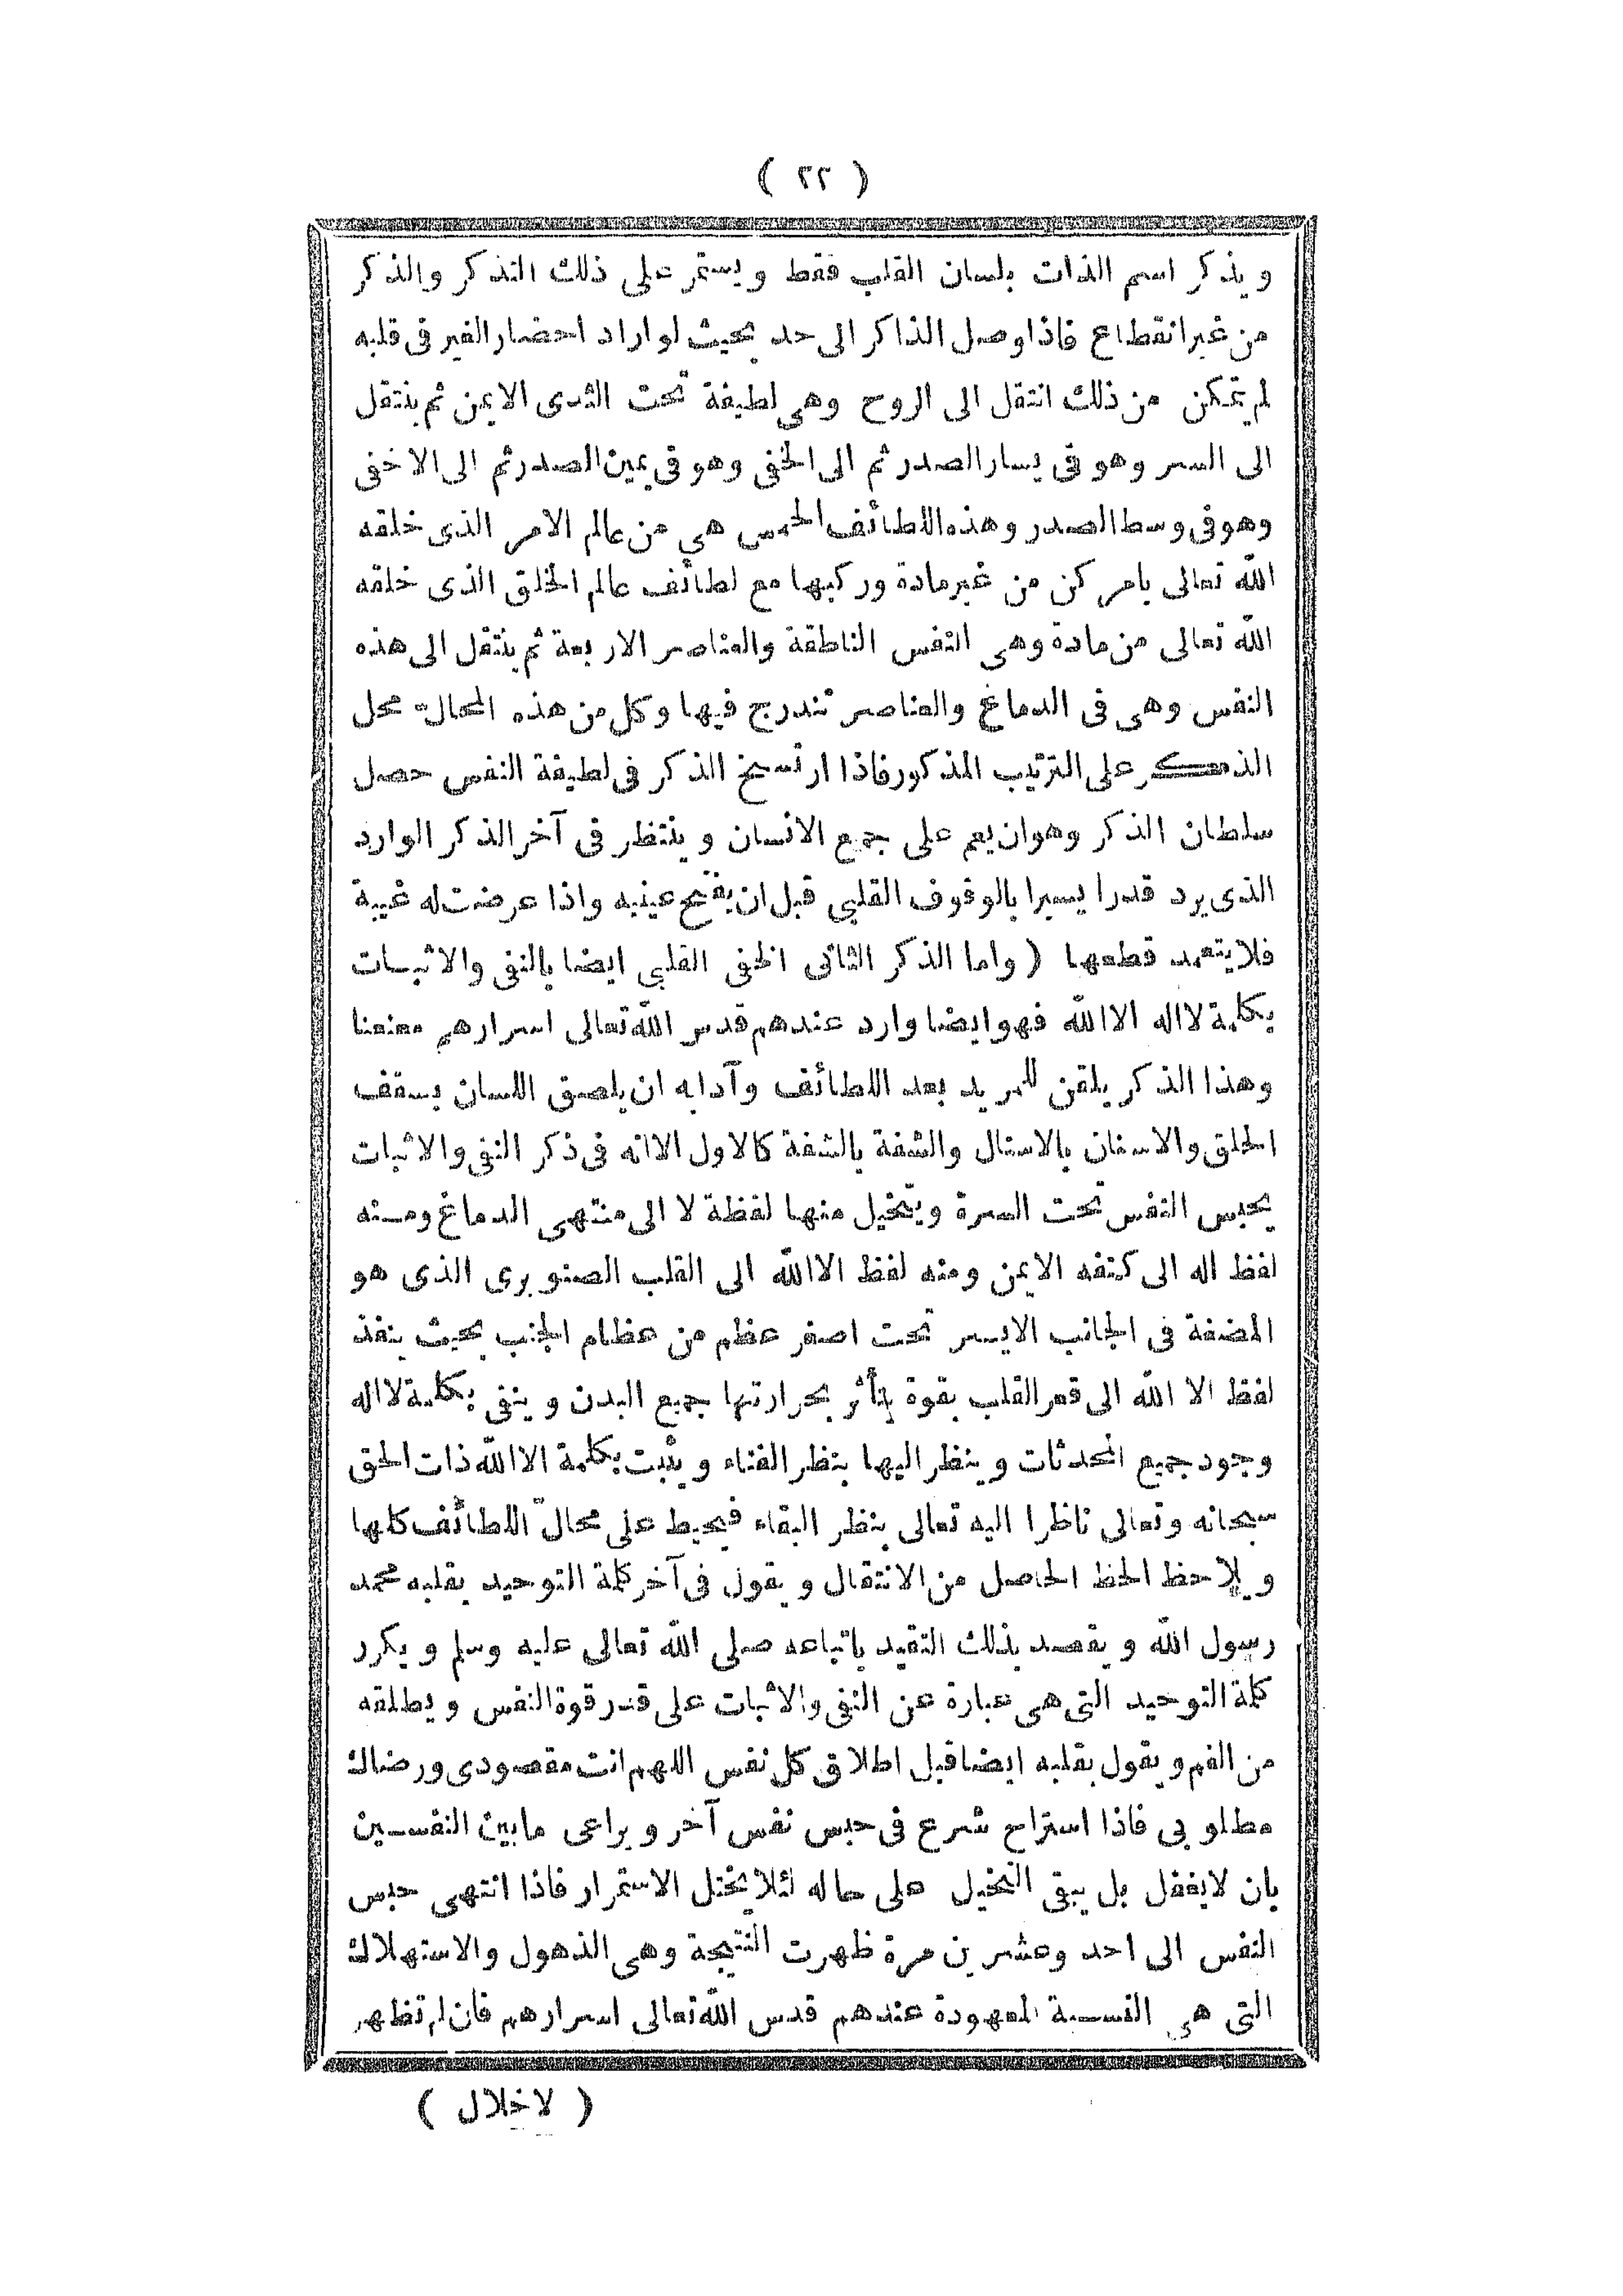 ( ٢٢ )
ويذكر اسم الذات بلسان القلب فقط ويستمر على ذلك التذكر والذكر
من غير انقطاع فاذا وصل الذاكر الى حد بحيث لو اراد احضار الغير فى قلبه
لم يتمكن من ذلك انتقل الى الروح وهى لطيفة تحت الثدى الايمن ثم ينتقل
الى السر وهو فى يسار الصدر ثم الى الخفى وهو فى يمين الصدر ثم الى الاخفى
وهو فى وسط الصدر وهذه اللطائف الخمس هى من عالم الامر الذى خلقه
الله تعالى بامر كن من غير مادة وركبها مع لطائف عالم الخلق الذى خلقه
الله تعالى من مادة وهى النفس الناطقة والعناصر الاربعة ثم ينتقل الى هذه
النفس وهى فى الدماغ والعناصر تندرج فيها وكل من هذه المحالّ محل
الذكر على الترتيب المذكور فاذا ارتسخ الذكر فى لطيفة النفس حصل
سلطان الذكر وهو ان يعم على جمع الانسان وينتظر فى آخر الذكر الوارد
الذى يرد قدرا يسيرا بالوقوف القلبى قبل ان يفتح عينيه واذا عرضت له غيبة
فلا يتعمد قطعها ( واما الذكر الثانى الخفى القلبى ايضا بالنفى والاثبات
بكلمة لا اله الا الله فهو ايضا وارد عندهم قدس الله تعالى اسرارهم معنعنا
وهذا الذكر يلقن للمريد بعد اللطائف وآدابه ان يلصق اللسان بسقف
الحلق والاسنان بالاسنان والشفة بالشفة كالاول الا انه فى ذكر النفى والاثبات
يحبس النفس تحت السرة ويتخيل منها لفظة لا الى منتهى الدماغ ومنه
لفظ اله الى كتفه الايمن ومنه لفظ الا الله الى القلب الصنوبرى الذى هو
المضغة فى الجانب الايسر تحت اصغر عظم من عظام الجنب بحيث ينفذ
لفظ الا الله الى قعر القلب بقوة يتأثر بحرارتها جميع البدن وينفى بكلمة لا اله
وجود جميع المحدثات وينظر اليها بنظر الفناء ويثبت بكلمة الا الله ذات الحق
سبحانه وتعالى ناظرا اليه تعالى بنظر البقاء فيحيط على محالّ اللطائف كلها
ويلاحظ الخط الحاصل من الانتقال ويقول فى آخر كلمة التوحيد بقلبه محمد
رسول الله ويقصد بذلك التقيد باتباعه صلى الله تعالى عليه وسلم ويكرر
كلمة التوحيد التى هى عبارة عن النفى والاثبات على قدر قوة النفس ويطلقه
من الفم ويقول بقلبه ايضا قبل اطلاق كل نفس اللهم انت مقصودى ورضاك
مطلوبى فاذا استراح شرع فى حبس نفس آخر ويراعى مابين النفسين
بان لايغفل بل يبقى التخيل على حاله لئلا يختل الاستمرار فاذا انتهى حبس
النفس الى احد وعشرين مرة ظهرت النتيجة وهى الذهول والاستهلاك
التى هى النسبة المعهودة عندهم قدس الله تعالى اسرارهم فان لم تظهر
( لاخلال )